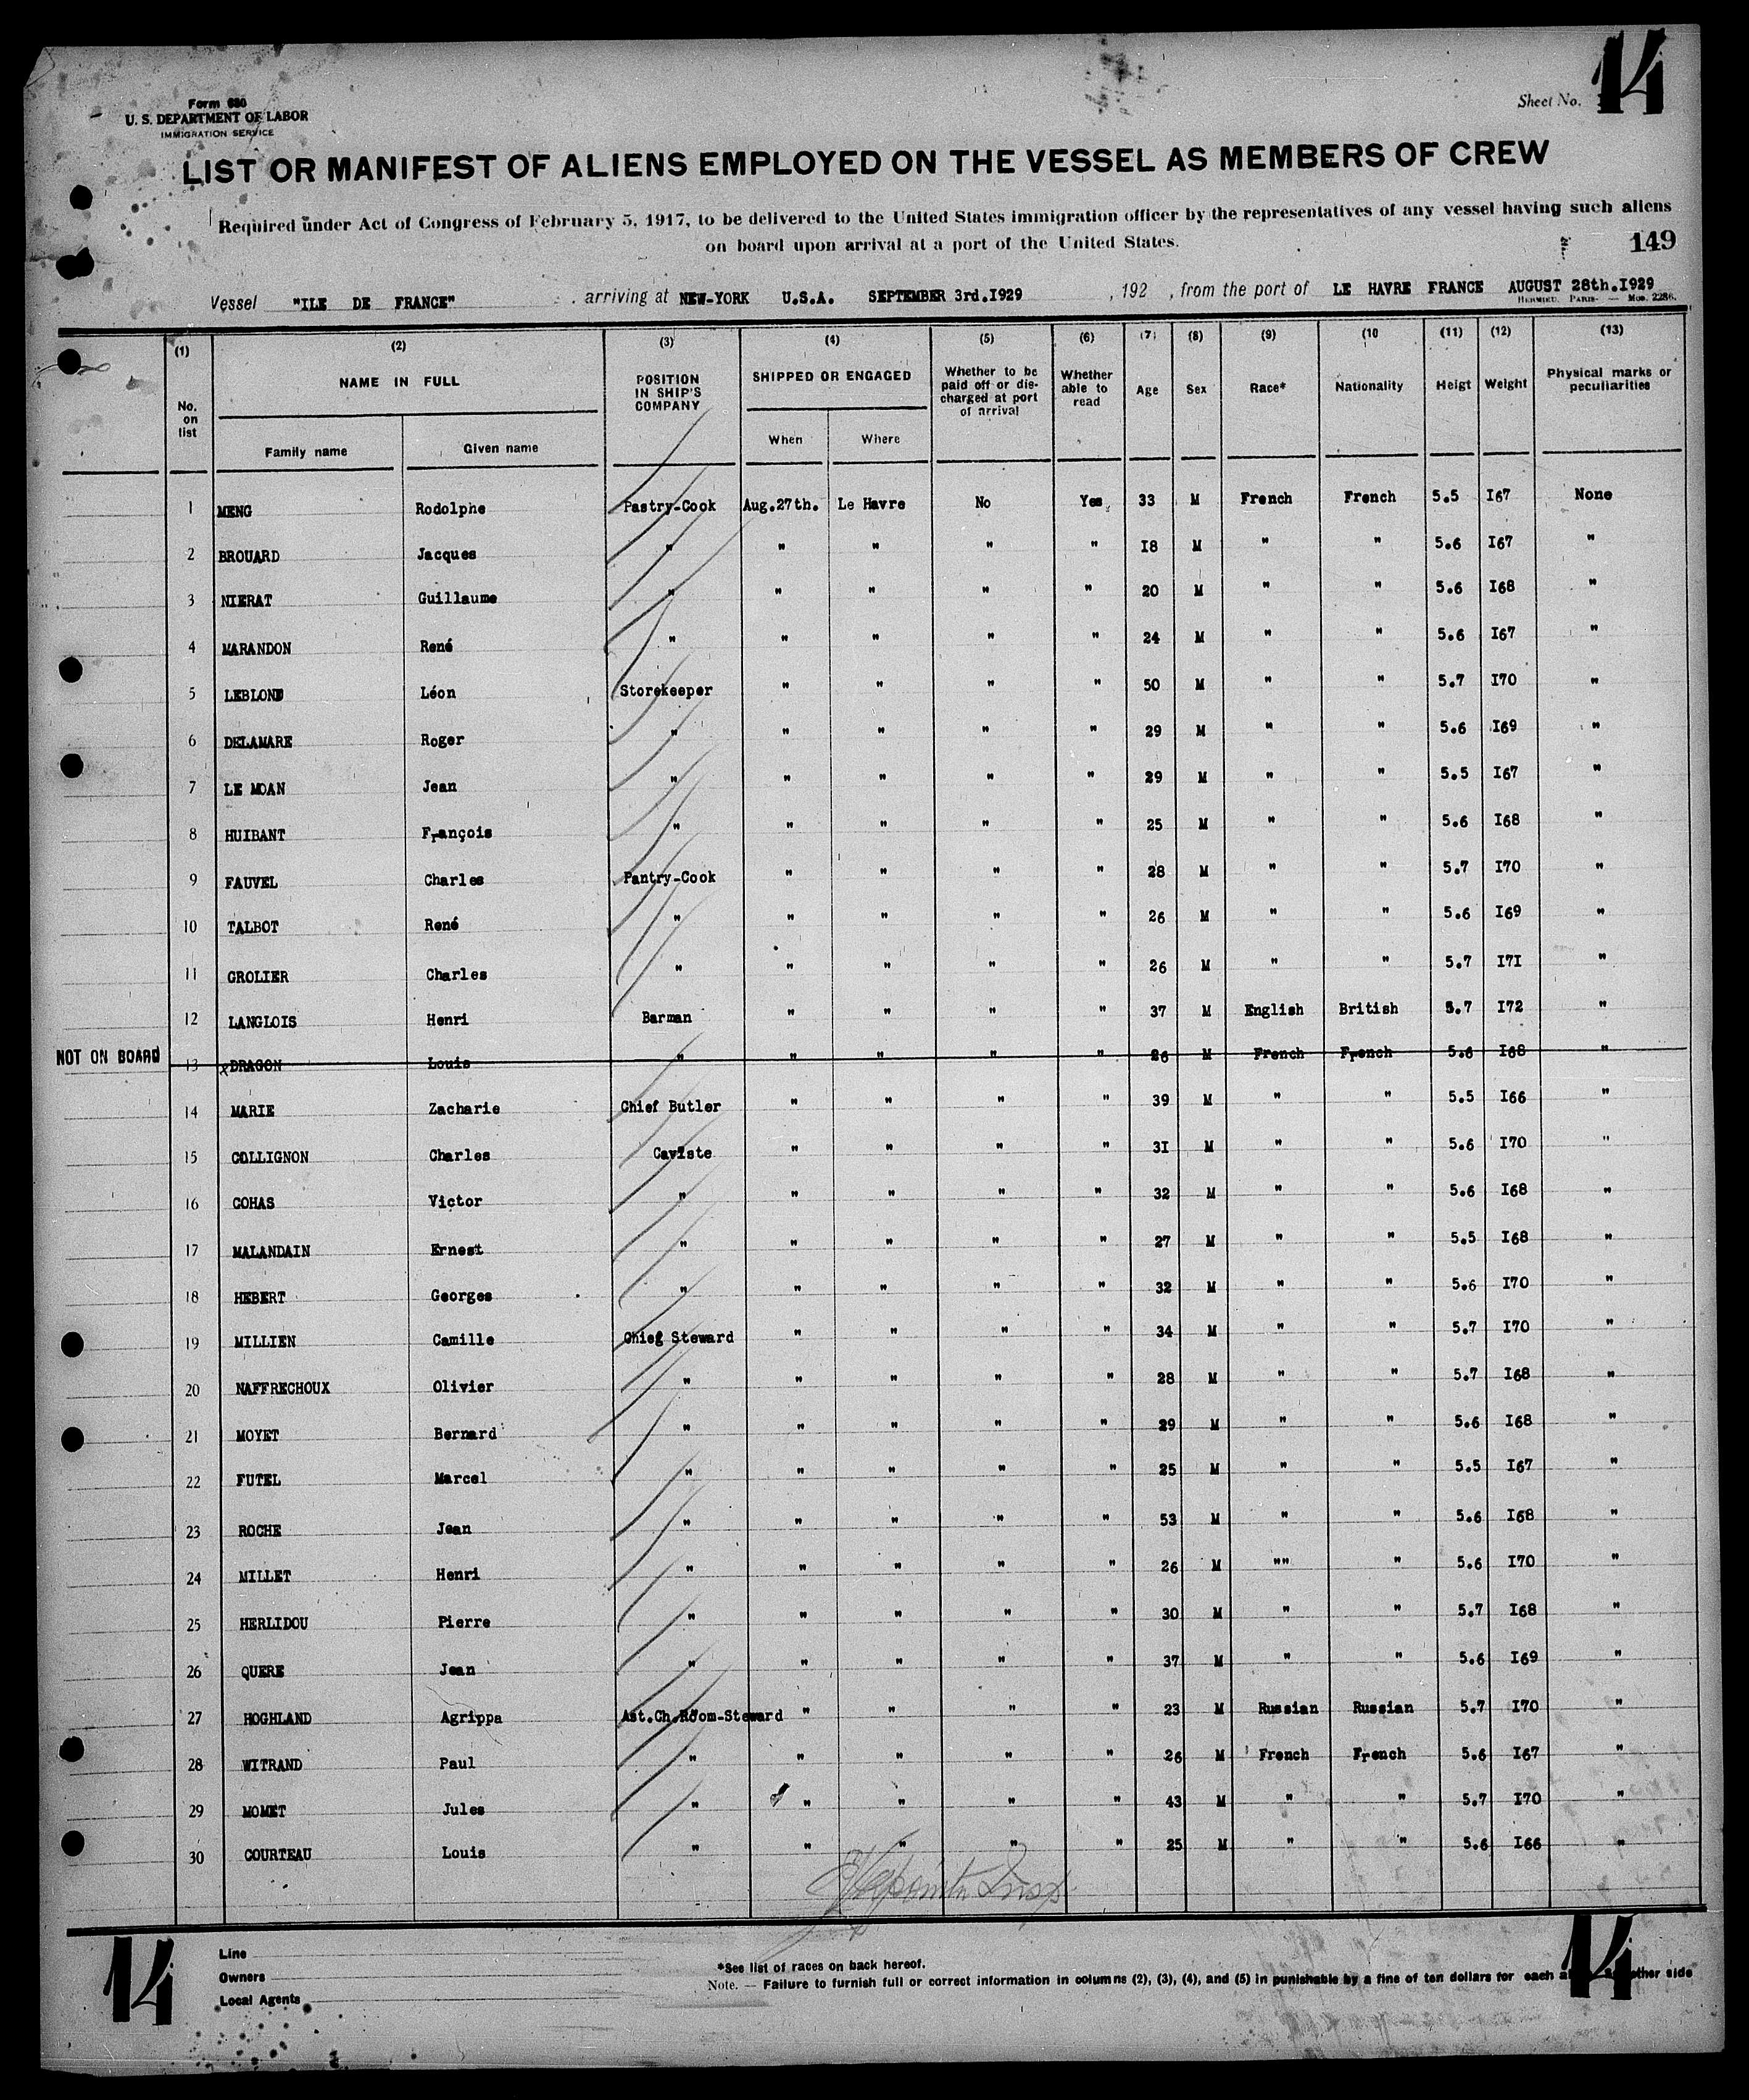 14
Form 680
U. S. DEPARTMENT OF LABOR
IMMIGRATION SERVICE
Sheet No.
LIST OR MANIFEST OF ALIENS EMPLOYED ON THE VESSEL AS MEMBERS OF CREW
Required under Act of Congress of February 5, 1917, to be delivered to the United States immigration officer by the representatives of any vessel having such aliens
on board upon arrival at a port of the United States.
149
Vessel "ILE DE FRANCE" , arriving at NEW-YORK U.S.A. SEPTEMBER 3rd.I929 , 192 , from the port of LE HAVRE FRANCE AUGUST 28th.I929
HERMIEU, PARIS- — Mos. 2286.
(1) (2) (3) (4) (5) (6) (7) (8) (9) (10 (11) (12) (13)
No. on list NAME IN FULL Family name Given name POSITION IN SHIP'S COMPANY SHIPPED OR ENGAGED When Where Whether to be paid off or dis- charged at port of arrival Whether able to read Age Sex Race* Nationality Heigt Weight Physical marks or peculiarities
1 MENG Rodolphe Pastry-Cook Aug.27th. Le Havre No Yes 33 M French French 5.5 I67 None
2 BROUARD Jacques " " " " " I8 M " " 5.6 I67 "
3 NIERAT Guillaume " " " " " 20 M " " 5.6 I68 "
4 MARANDON René " " " " " 24 M " " 5.6 I67 "
5 LEBLOND Léon Storekeeper " " " " 50 M " " 5.7 I70 "
6 DELAMARE Roger " " " " " 29 M " " 5.6 I69 "
7 LE MOAN Jean " " " " " 29 M " " 5.5 I67 "
8 HUIBANT François " " " " " 25 M " " 5.6 I68 "
9 FAUVEL Charles Pantry-Cook " " " " 28 M " " 5.7 I70 "
10 TALBOT René " " " " " 26 M " " 5.6 I69 "
11 GROLIER Charles " " " " " 26 M " " 5.7 I7I "
12 LANGLOIS Henri Barman " " " " 37 M English British 5.7 I72 "
NOT ON BOARD 13 DRAGON Louis " " " " " 26 M French French 5.6 I68 "
14 MARIE Zacharie Chief Butler " " " " 39 M " " 5.5 I66 "
15 COLLIGNON Charles Caviste " " " " 3I M " " 5.6 I70 "
16 COHAS Victor " " " " " 32 M " " 5.6 I68 "
17 MALANDAIN Ernest " " " " " 27 M " " 5.5 I68 "
18 HEBERT Georges " " " " " 32 M " " 5.6 I70 "
19 MILLIEN Camille Chief Steward " " " " 34 M " " 5.7 I70 "
20 NAFFRECHOUX Olivier " " " " " 28 M " " 5.7 I68 "
21 MOYET Bernard " " " " " 29 M " " 5.6 I68 "
22 FUTEL Marcel " " " " " 25 M " " 5.5 I67 "
23 ROCHE Jean " " " " " 53 M " " 5.6 I68 "
24 MILLET Henri " " " " " 26 M "" " 5.6 I70 "
25 HERLIDOU Pierre " " " " " 30 M " " 5.7 I68 "
26 QUERE Jean " " " " " 37 M " " 5.6 I69 "
27 HOGHLAND Agrippa Ast.Ch.Room-Steward " " " " 23 M Russian Russian 5.7 I70 "
28 WITRAND Paul " " " " " 26 M French French 5.6 I67 "
29 MOMET Jules " " " " " 43 M " " 5.7 I70 "
30 COURTEAU Louis " " " " " 25 M " " 5.6 I66 "
14
Line
Owners
Local Agents
*See list of races on back hereof.
Note. — Failure to furnish full or correct information in columns (2), (3), (4), and (5) in punishable by a fine of ten dollars for each other side
14